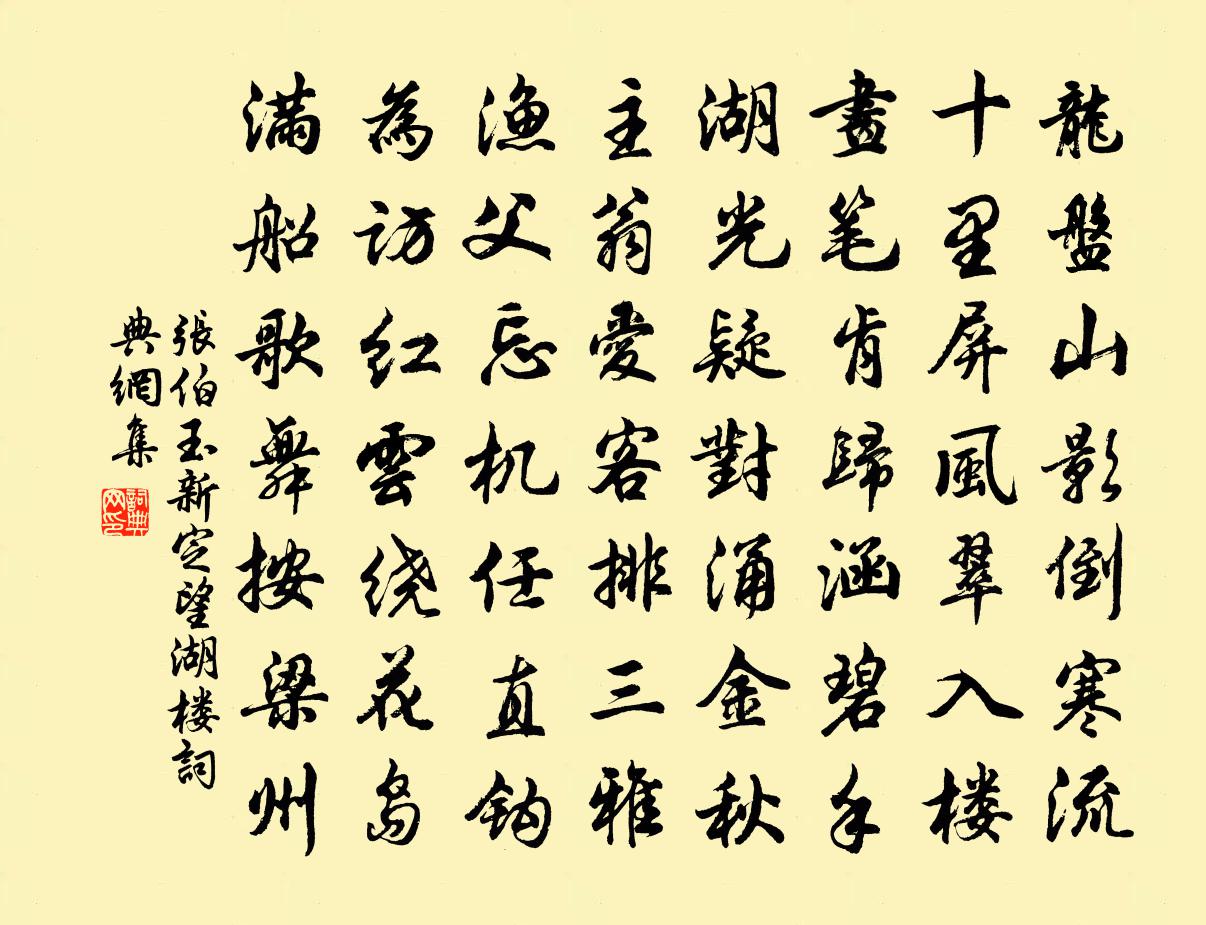 龍盤山影倒寒流
十里屏風翠入楼
畫笔肯歸涵碧手
湖光疑對涌金秋
主翁愛客排三雅
渔父忘机任直钩
為访红雲绕花岛
满船歌舞按梁州
張伯玉新定望湖楼詞
典網集
詞典网印